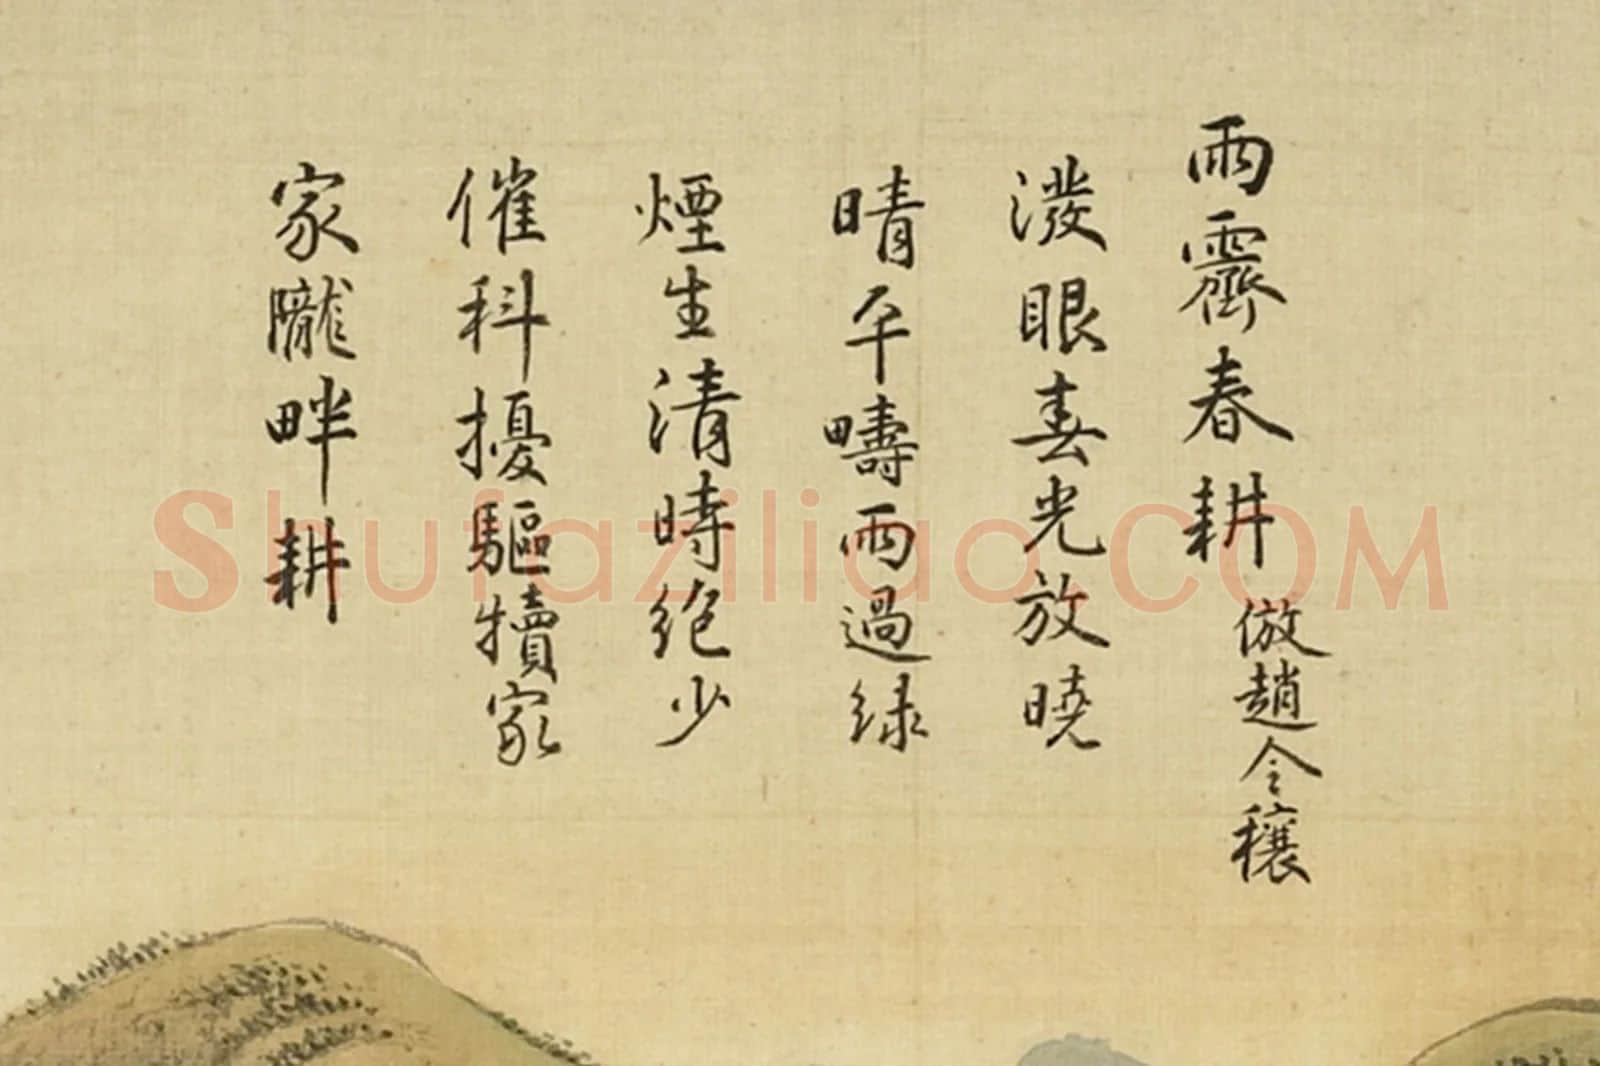 雨霽春耕 倣趙令穰
潑眼春光放曉
晴平疇雨過緑
煙生清時絶少
催科擾驅犢家
家隴畔耕
Shufaziliao.COM